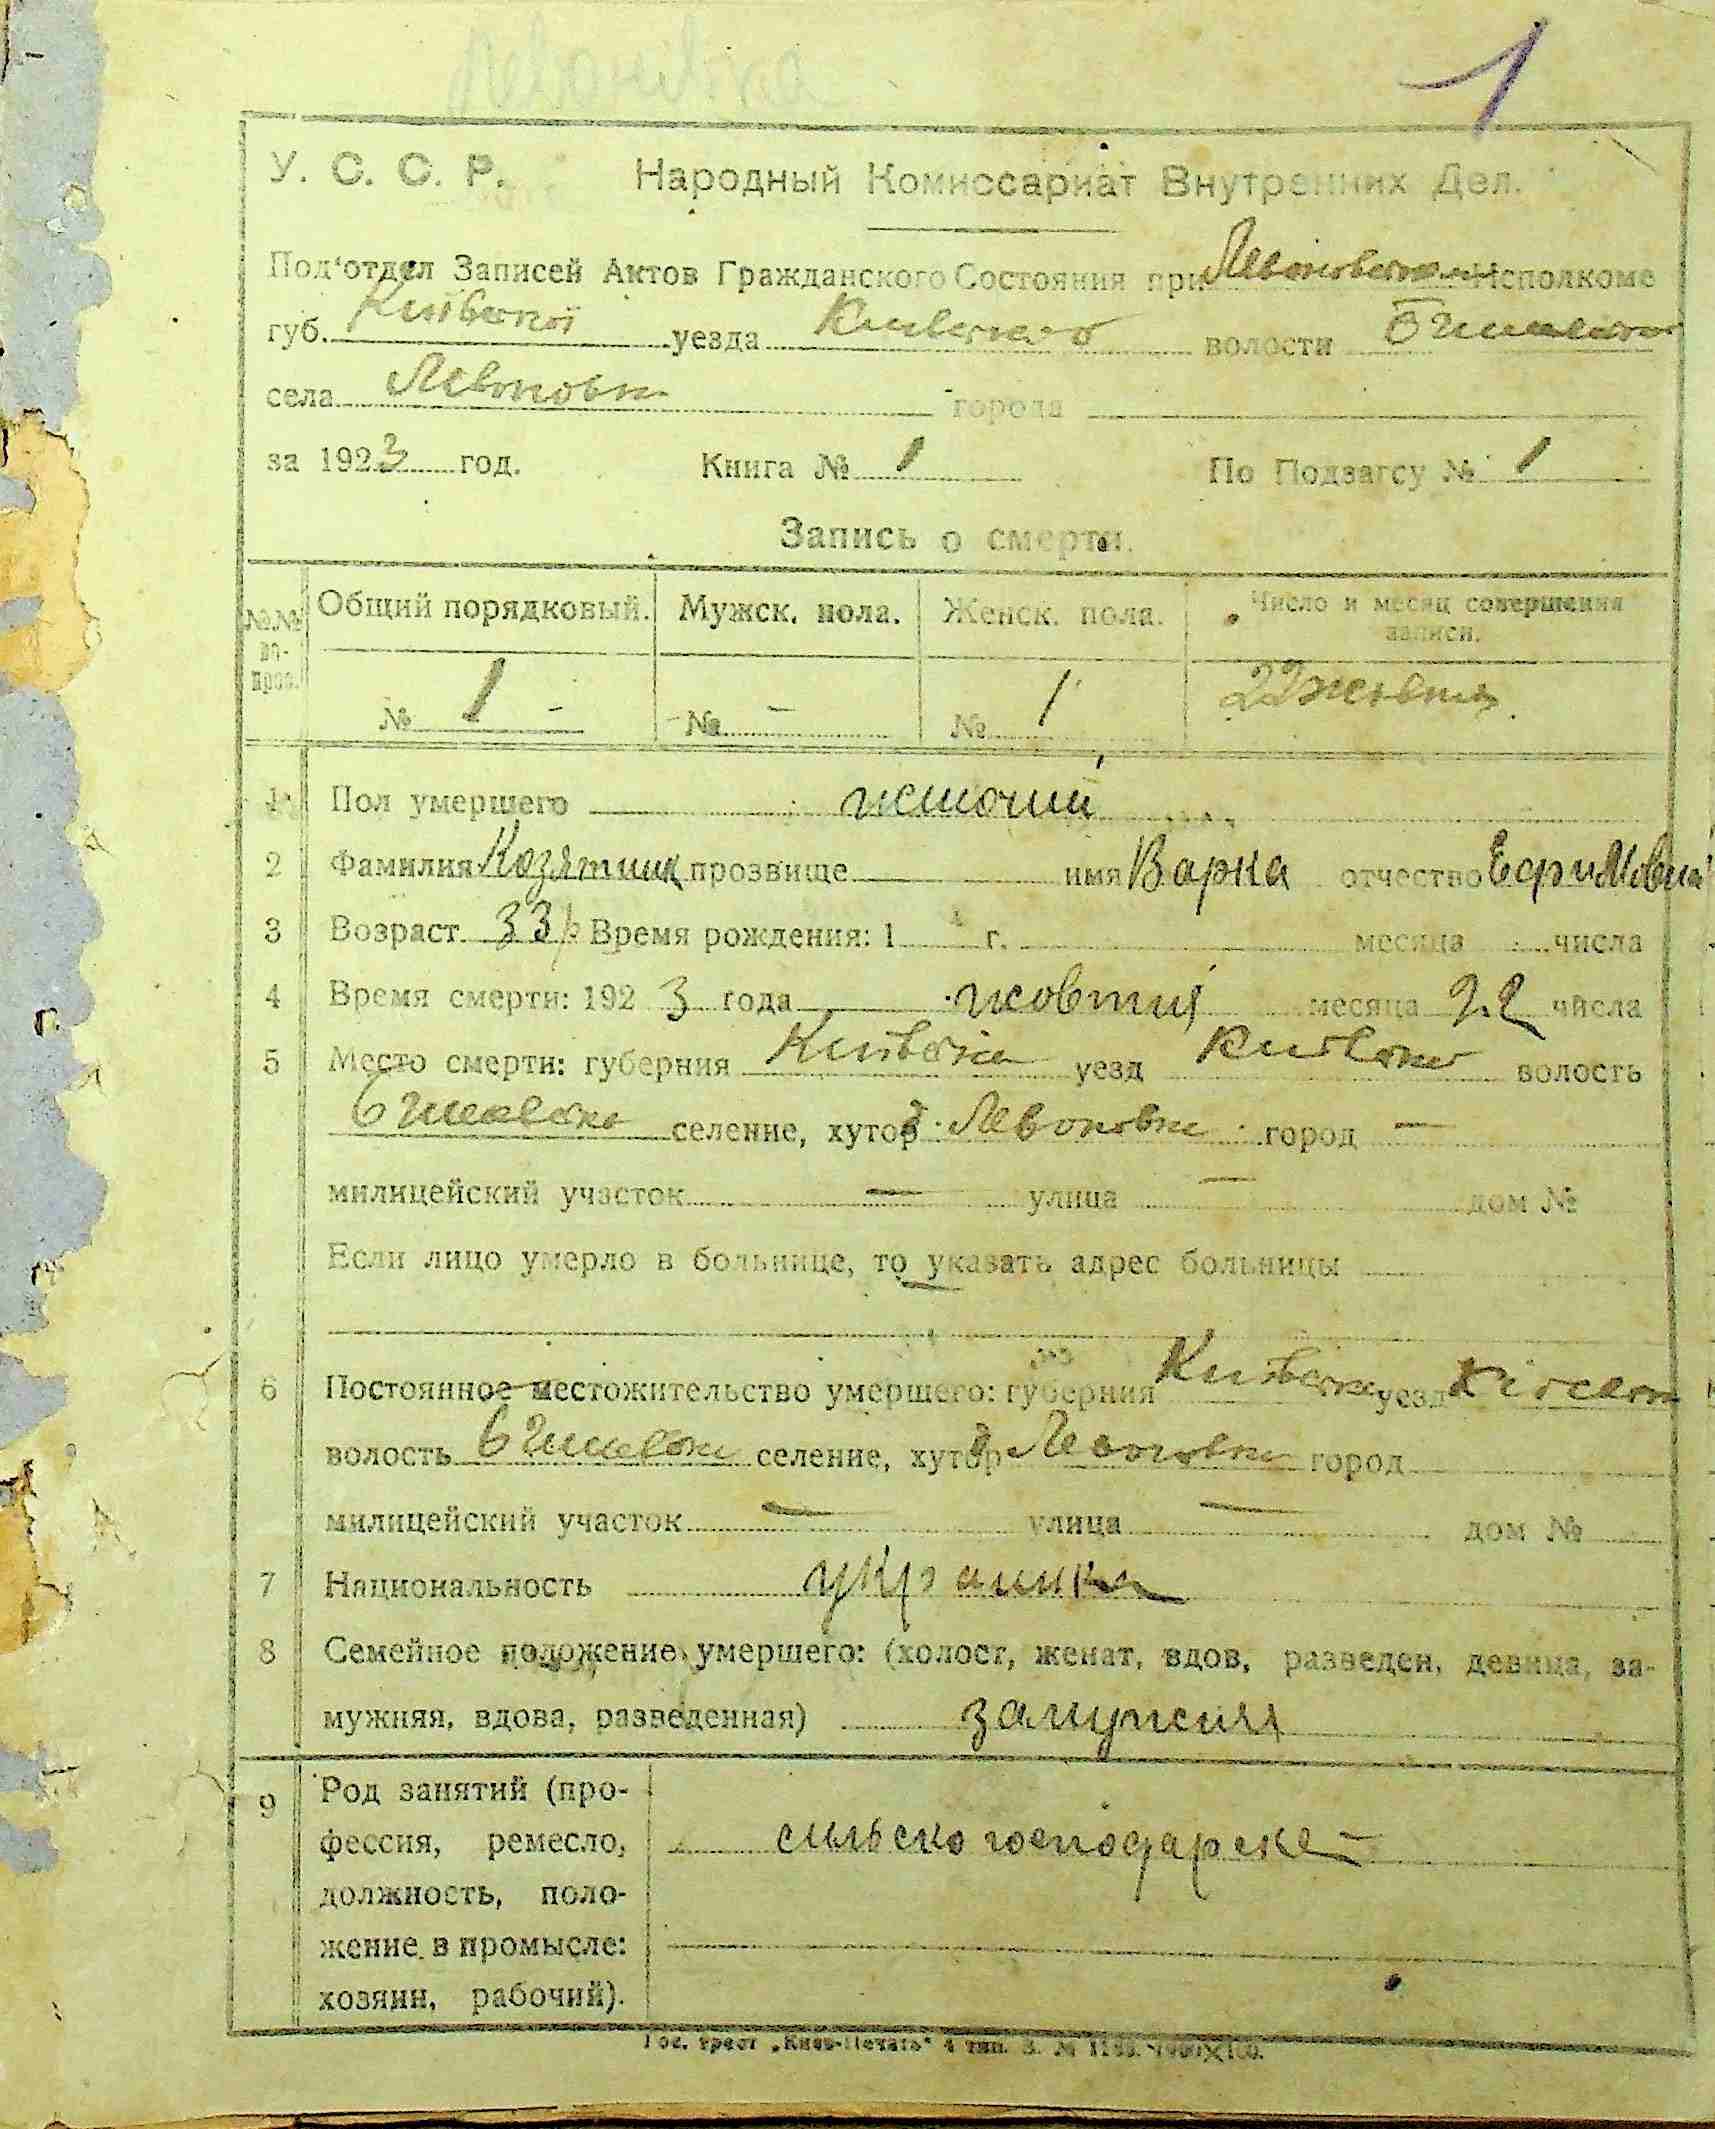 1
У. С. С. Р. Народный Комиссариат Внутренних Дел.
Под'отдел Записей Актов Гражданского Состояния при Исполкоме
губ. Київської уезда Київского волости
села Левоновки города
за 1923 год. Книга № 1 По Подзагсу № 1
Запись о смерти.
№№ во-прос. Общий порядковый. Мужск. пола. Женск. пола. Число и месяц совершения записи.
№ 1 - № - № 1 22 жовтня
1 Пол умершего жіночий
2 Фамилия прозвище имя Варка отчество
3 Возраст 33 р Время рождения: 1 г. месяца числа
4 Время смерти: 1923 года жовтня месяца 22 числа
5 Место смерти: губерния Київська уезд Київська волость
селение, хутор Левоновка город —
милицейский участок — улица — дом №
Если лицо умерло в больнице, то указать адрес больницы
6 Постоянное местожительство умершего: губерния Київська уезд
волость селение, хутор Левоновка город
милицейский участок — улица — дом №
7 Национальность українка
8 Семейное положение умершего: (холост, женат, вдов, разведен, девица, за-
мужняя, вдова, разведенная) замужняя
9 Род занятий (про-
фессия, ремесло, сільсько господарске
должность, поло-
жение в промысле:
хозяин, рабочий).
Гос. трест „Киев-Печать" 4 тип.